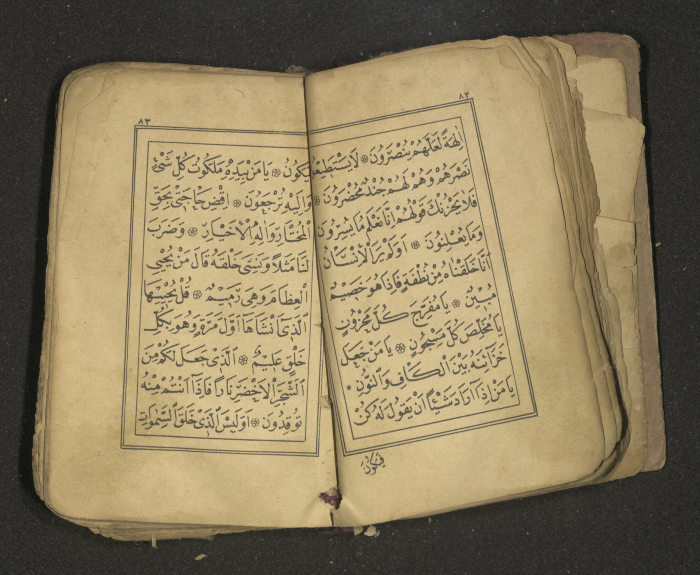 ٨٢
اٰلِهَةً لَعَلَّهُمْ يُنْصَرُونَ ۞ لَا يَسْتَطِيعُونَ
نَصْرَهُمْ وَهُمْ لَهُمْ جُنْدٌ مُحْضَرُونَ ۞
فَلَا يَحْزُنْكَ قَوْلُهُمْ اِنَّا نَعْلَمُ مَا يُسِرُّونَ
وَمَا يُعْلِنُونَ ۞ اَوَلَمْ يَرَ الْاِنْسَانُ
اَنَّا خَلَقْنَاهُ مِنْ نُطْفَةٍ فَاِذَا هُوَ خَصِيمٌ
مُبِينٌ ۞ يَا مُفَرِّجَ كُلِّ مَحْزُونٍ
يَا مُخَلِّصَ كُلِّ مَسْجُونٍ ۞ يَا مَنْ جَعَلَ
خَزَائِنَهُ بَيْنَ الْكَافِ وَالنُّونِ ۞
يَا مَنْ اِذَا اَرَادَ شَيْئًا اَنْ يَقُولَ لَهُ كُنْ
فَيَكُونُ
٨٣
فَيَكُونُ ۞ يَا مَنْ بِيَدِهِ مَلَكُوتُ كُلِّ شَيْءٍ
وَاِلَيْهِ تُرْجَعُونَ ۞ اِقْضِ حَاجَتِي بِحَقِّ
الْمُخْتَارِ وَاٰلِهِ الْاَخْيَارِ ۞ وَضَرَبَ
لَنَا مَثَلًا وَنَسِيَ خَلْقَهُ قَالَ مَنْ يُحْيِي
الْعِظَامَ وَهِيَ رَمِيمٌ ۞ قُلْ يُحْيِيهَا
الَّذِي اَنْشَاَهَا اَوَّلَ مَرَّةٍ وَهُوَ بِكُلِّ
خَلْقٍ عَلِيمٌ ۞ اَلَّذِي جَعَلَ لَكُمْ مِنَ
الشَّجَرِ الْاَخْضَرِ نَارًا فَاِذَا اَنْتُمْ مِنْهُ
تُوقِدُونَ ۞ اَوَلَيْسَ الَّذِي خَلَقَ السَّمٰوَاتِ